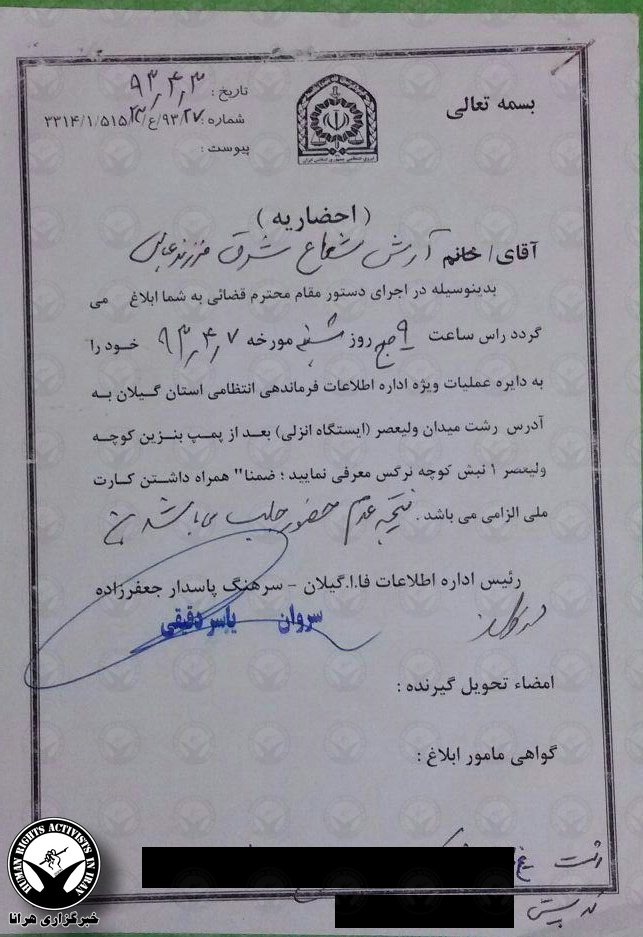 بسمه تعالی
تاریخ : ۹۳٫۴٫۳
شماره : ۳۳۱۴/۱/۵۱۵/۲۳/ع/۹۳/۲۷
پیوست :
( احضاریه )
آقای/ خانم آرش شعاع شرق فرزند
بدینوسیله در اجرای دستور مقام محترم قضائی به شما ابلاغ می
گردد راس ساعت ۹ صبح روز شنبه مورخه ۹۳٫۴٫۷ خود را
به دایره عملیات ویژه اداره اطلاعات فرماندهی انتظامی استان گیلان به
آدرس رشت میدان ولیعصر (ایستگاه انزلی) بعد از پمپ بنزین کوچه
ولیعصر ۱ نبش کوچه نرگس معرفی نمایید ؛ ضمنا" همراه داشتن کارت
ملی الزامی می باشد . نتیجه عدم حضور جلب می باشد
رئیس اداره اطلاعات فا.ا.گیلان - سرهنگ پاسدار جعفرزاده
سروان یاسر دقیقی
امضاء تحویل گیرنده :
گواهی مامور ابلاغ :
رشت
کد پستی
HUMAN RIGHTS ACTIVISTS IN IRAN
خبرگزاری هرانا